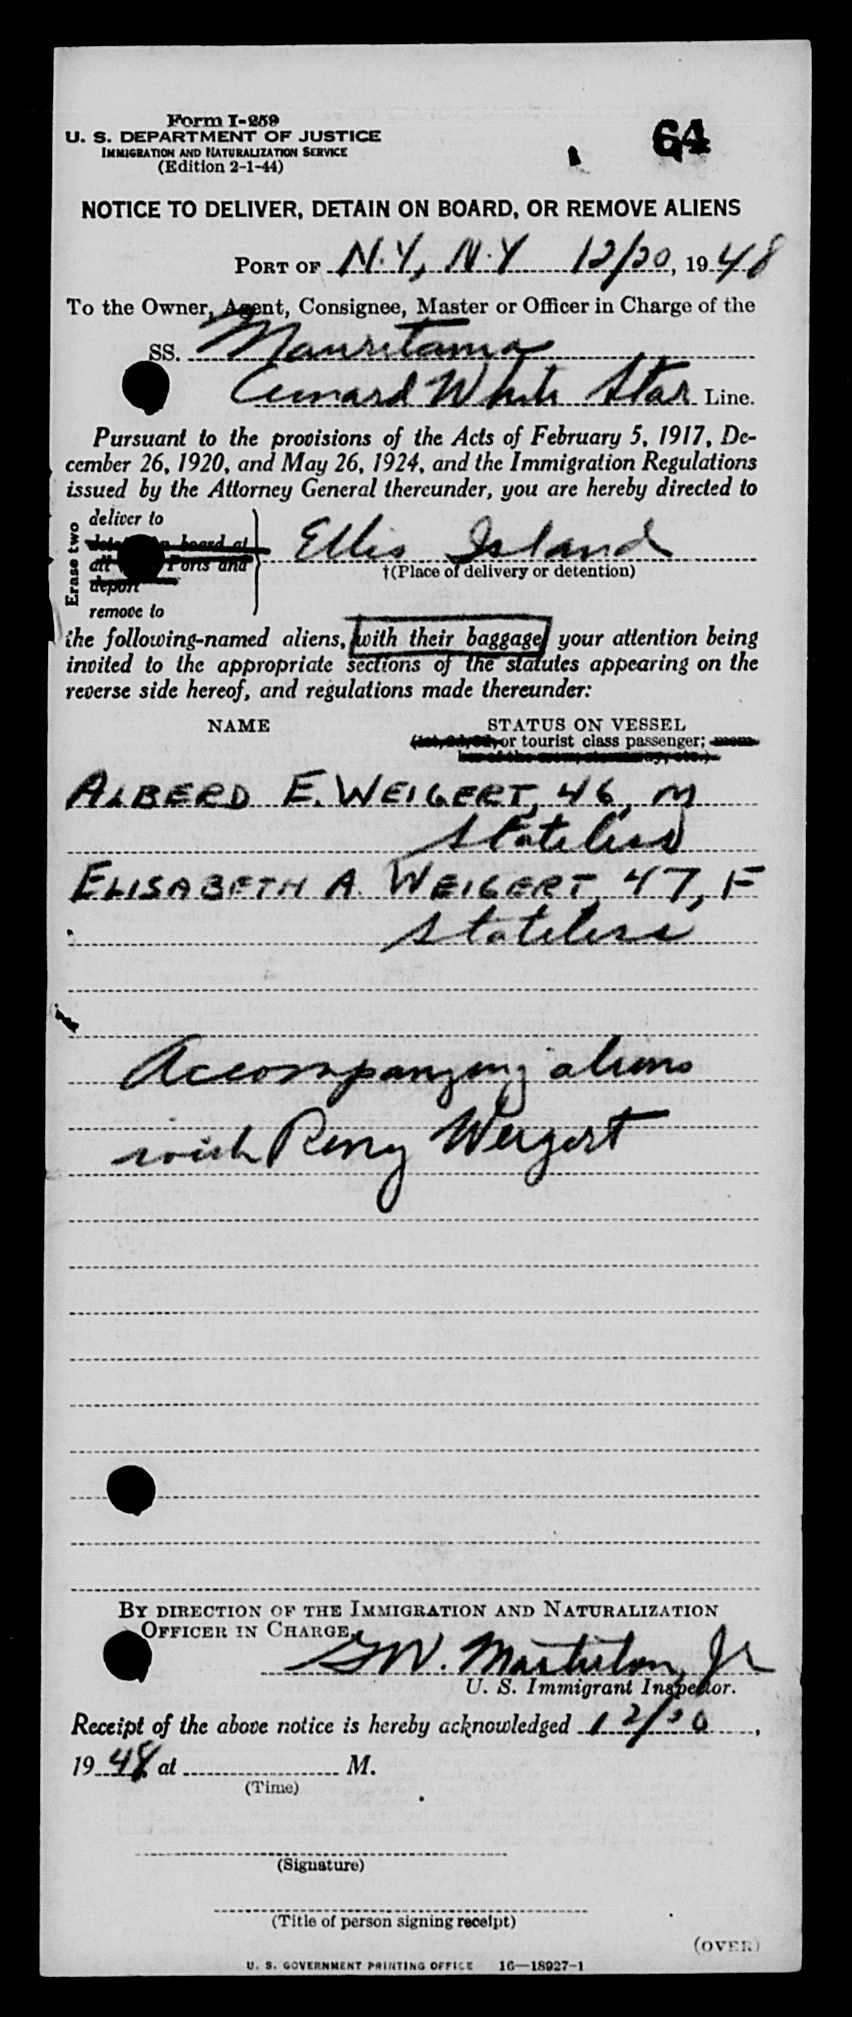 Form I-259
U. S. DEPARTMENT OF JUSTICE
IMMIGRATION AND NATURALIZATION SERVICE
(Edition 2-1-44)
64
NOTICE TO DELIVER, DETAIN ON BOARD, OR REMOVE ALIENS
PORT OF N.Y., N.Y 12/20, 1948
To the Owner, Agent, Consignee, Master or Officer in Charge of the
SS. Mauretania
Cunard White Star Line.
Pursuant to the provisions of the Acts of February 5, 1917, De-
cember 26, 1920, and May 26, 1924, and the Immigration Regulations
issued by the Attorney General thereunder, you are hereby directed to
Erase two
deliver to
board at
all Ports and
deport
remove to
Ellis Island
†(Place of delivery or detention)
the following-named aliens, with their baggage, your attention being
invited to the appropriate sections of the statutes appearing on the
reverse side hereof, and regulations made thereunder:
NAME STATUS ON VESSEL
or tourist class passenger; mem-
ber of the crew, stowaway, etc.)
ALBERD E. WEIGERT, 46, M
Stateless
ELISABETH A. WEIGERT, 47, F
Stateless
Accompanying aliens
with Weigert
BY DIRECTION OF THE IMMIGRATION AND NATURALIZATION
OFFICER IN CHARGE,
Jr
U. S. Immigrant Inspector.
Receipt of the above notice is hereby acknowledged 12/20,
1948 at M.
(Time)
(Signature)
(Title of person signing receipt)
(OVER)
U. S. GOVERNMENT PRINTING OFFICE 16—18927-1